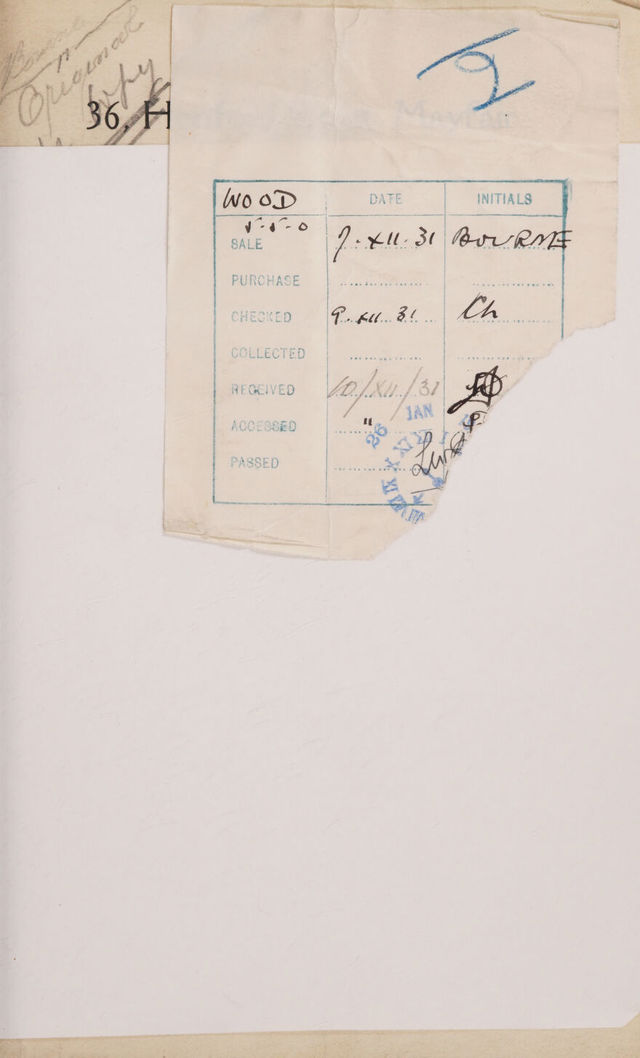 Original
Copy
36. H
WOOD DATE INITIALS
5-5-0
SALE 7. XII. 31 BOURNE
PURCHASE
CHECKED 9. XII. 31 Ch
COLLECTED
RECEIVED 10/XII/31
ACCESSED "
PASSED
26 JAN